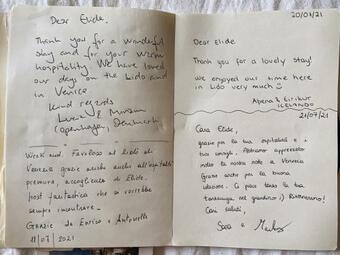 Dear Elide,
Thank you for a wonderful
stay and for your warm
hospitality. We have loved
our days on the Lido and
in Venice
Kind regards
&
Copenhagen, Denmark
Week end. Favoloso al Lido di
Venezia grazie anche all'ospitalità
premura, accoglienza di Elide,
host fantastica che si vorrebbe
sempre incontrare.
Grazie da Enrico e Antonella
11/07/2021
20/07/21
Dear Elide
Thank you for a lovely stay!
We enjoyed our time here
in Lido very much ☺
& Eiríkur
ICELAND
21/07/21
Cara Elide,
grazie per la tua ospitalità e i
tuoi consigli. Abbiamo apprezzato
molto la nostra notte a Venezia
Grazie anche per la buona
colazione. Ci piace tanto la tua
tartaruga nel giardino :) Ritorneremo!
Cari saluti,
Sara e